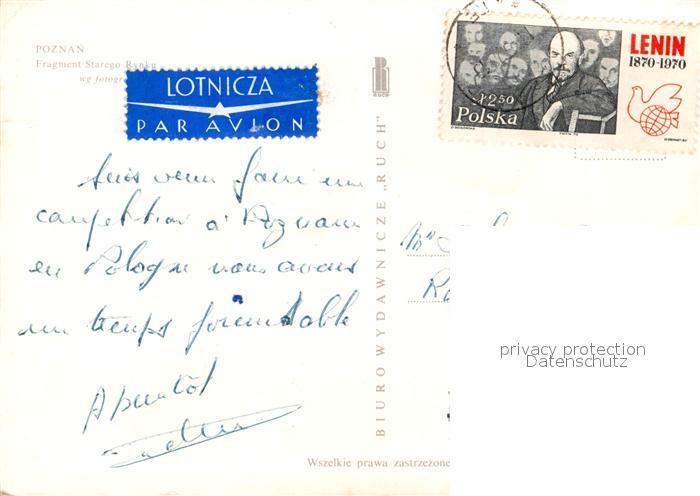 POZNAŃ
Fragment Starego Rynku
wg fotogr
LOTNICZA
PAR AVION
RUCH
LENIN
1870-1970
zł 2.50
Polska
Suis venu faire une
competition a Poznam
en Pologne nous avons
un temps formidable
A bientôt
BIURO WYDAWNICZE „RUCH"
privacy protection
Datenschutz
Wszelkie prawa zastrzeżone